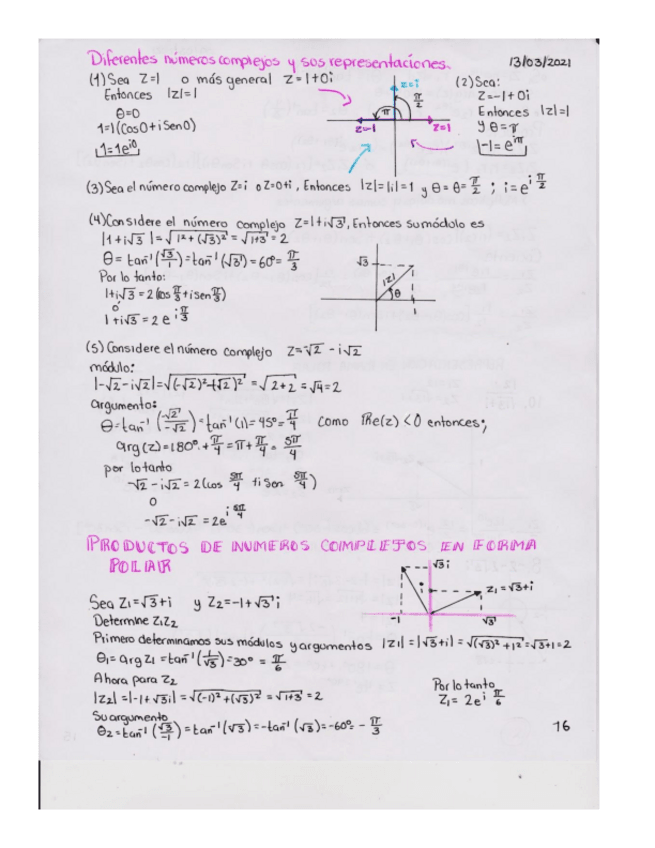 Diferentes números complejos y sus representaciones. 13/03/2021
(1) Sea Z=1 o más general Z=1+0i
Entonces |z|=1
θ=0
1=1(Cos0+iSen0)
1=1e^i0
z=i
π/2
π
z=-1
z=1
(2) Sea:
Z=-1+0i
Entonces |z|=1
y θ=π
-1=e^iπ
(3) Sea el número complejo Z=i o Z=0+i, Entonces |z|=|i|=1 y θ=θ=π/2 ; i=e^i π/2
(4) Considere el número complejo Z=1+i√3, Entonces su módulo es
|1+i√3|=√1²+(√3)²=√1+3=2
θ=tan⁻¹(√3/1)=tan⁻¹(√3)=60°=π/3
Por lo tanto:
1+i√3=2(cos π/3+isen π/3)
o
1+i√3=2e^i π/3
√3
|z|
θ
1
(5) Considere el número complejo Z=√2-i√2
módulo:
|-√2-i√2|=√(-√2)²+(√2)²=√2+2=√4=2
argumento:
θ=tan⁻¹(√2/-√2)=tan⁻¹(1)=45°=π/4 Como Re(z)<0 entonces;
arg(z)=180°+π/4=π+π/4=5π/4
por lo tanto
-√2-i√2=2(cos 5π/4 +isen 5π/4)
O
-√2-i√2=2e^i 5π/4
PRODUCTOS DE NUMEROS COMPLEJOS EN FORMA
POLAR
√3i
i
Z₁=√3+i
-1
√3
Sea Z₁=√3+i y Z₂=-1+√3i
Determine Z₁Z₂
Primero determinamos sus módulos y argumentos |Z₁|=|√3+i|=√(√3)²+1²=√3+1=2
θ₁=arg Z₁=tan⁻¹(1/√3)=30°=π/6
Ahora para Z₂
|Z₂|=|-1+√3i|=√(-1)²+(√3)²=√1+3=2
Por lo tanto
Z₁=2e^i π/6
Su argumento
θ₂=tan⁻¹(√3/-1)=tan⁻¹(√3)=-tan⁻¹(√3)=-60°=-π/3
16